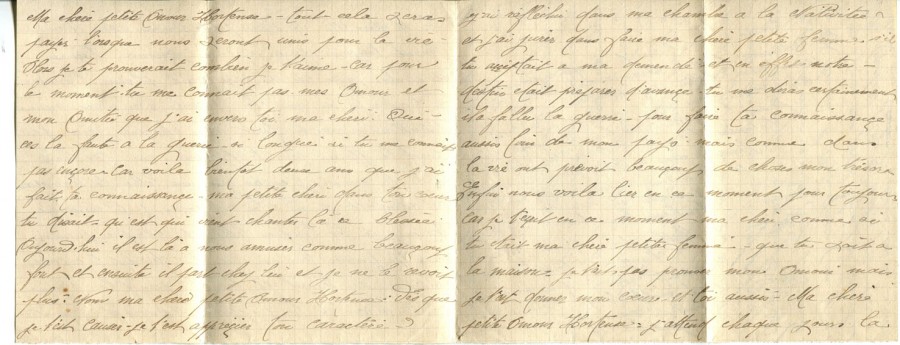 Ma chère petite Amour Hortense - tout cela sera
payer lorsque nous seront unis pour la vie -
Alors je te prouverait combien je t'aime - car pour
le moment tu me connait pas mes Amour et
mon Amitié que j'ai envers toi ma chéri.
ces la faute a la guerre si longue si tu me connais
pas encore Car voila bientot deux ans que j'ai
fait ta connaissance - ma petite chéri dans ton cœur
tu disait - qu'est qui vient chanter la ce blessée
Aujourd'hui il est là a nous amuser comme beaucoup
font et ensuite il part chez lui et je ne le revoit
plus : Nous ma chère petite Amour Hortense : Dès que
je t'est causer - je t'est apprécier ton caractère -
j'ai réflechir dans ma chambre a la Nativitée
et j'ai jurer dans faire ma chère petite femme s'il
tu a ma demende et en effet notre -
destins était préparer d'avance tu me diras certainement
il a fallu la guerre - pour faire ta connaissance
aussi loin de mon pays mais comme dans
la vie ont prévoit beaucoup de choses mon trésor
Enfin nous voila lier en ce moment pour toujour
Car je t'écrit en ce moment ma chéri comme si
tu était ma chère petite femme - que tu soit a
la maison. je t'est pas promis mon Amour mais
je t'est donner mon cœur - et toi aussi - Ma chère
petite Amour Hortense : j'attend chaque jours la